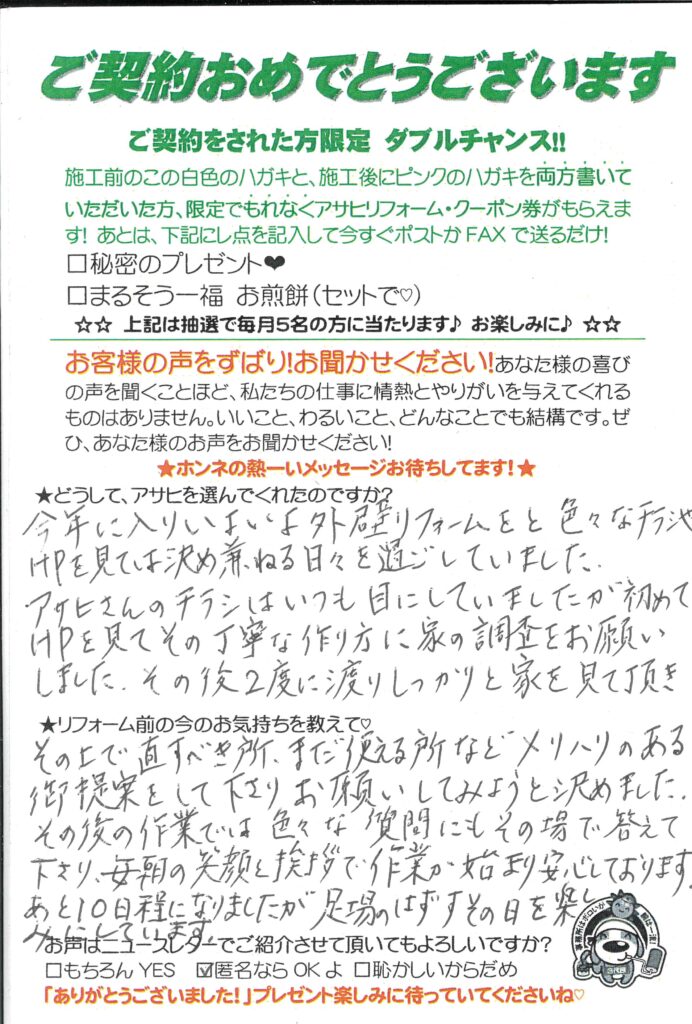 ご契約おめでとうございます
ご契約をされた方限定 ダブルチャンス!!
施工前のこの白色のハガキと、施工後にピンクのハガキを両方書いて
いただいた方、限定でもれなくアサヒリフォーム・クーポン券がもらえま
す! あとは、下記にレ点を記入して今すぐポストかFAXで送るだけ!
□秘密のプレゼント❤
□まるそう一福 お煎餅(セットで♡)
☆☆ 上記は抽選で毎月5名の方に当たります♪ お楽しみに♪ ☆☆
お客様の声をずばり!お聞かせください!あなた様の喜び
の声を聞くことほど、私たちの仕事に情熱とやりがいを与えてくれる
ものはありません。いいこと、わるいこと、どんなことでも結構です。ぜ
ひ、あなた様のお声をお聞かせください!
★ホンネの熱ーいメッセージお待ちしてます!★
★どうして、アサヒを選んでくれたのですか?
今年に入りいよいよ外壁リフォームをと色々なチラシや
HPを見ては決め兼ねる日々を過ごしていました.
アサヒさんのチラシはいつも目にしていましたが初めて
HPを見てその丁寧な作り方に家の調査をお願い
しました.その後2度に渡りしっかりと家を見て頂き
★リフォーム前の今のお気持ちを教えて♡
その上で直すべき所、まだ使える所などメリハリのある
御提案をして下さりお願いしてみようと決めました.
その後の作業では色々な質問にもその場で答えて
下さり、毎朝の笑顔と挨拶で作業が始まり安心しております.
あと10日程になりましたが足場のはずすその日を楽し
みにしています
お声はニュースレターでご紹介させて頂いてもよろしいですか?
□もちろんYES ☑匿名ならOKよ □恥かしいからだめ
「ありがとうございました!」プレゼント楽しみに待っていてくださいね♡